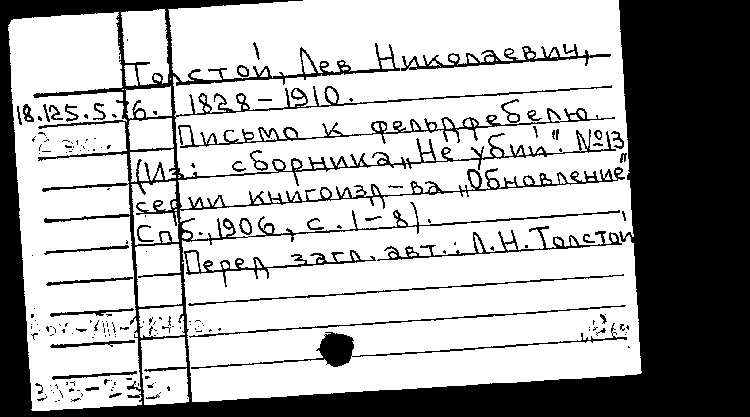 Толстой, Лев Николаевич,
18.125.5.76. 1828-1910.
2 экз. Письмо к фельдфебелю.
(Из: сборника „Не убий". №13
серии книгоизд-ва „Обновление"
Спб., 1906, с. 1-8).
Перед загл. авт.: Л.Н.Толстой
393-233.